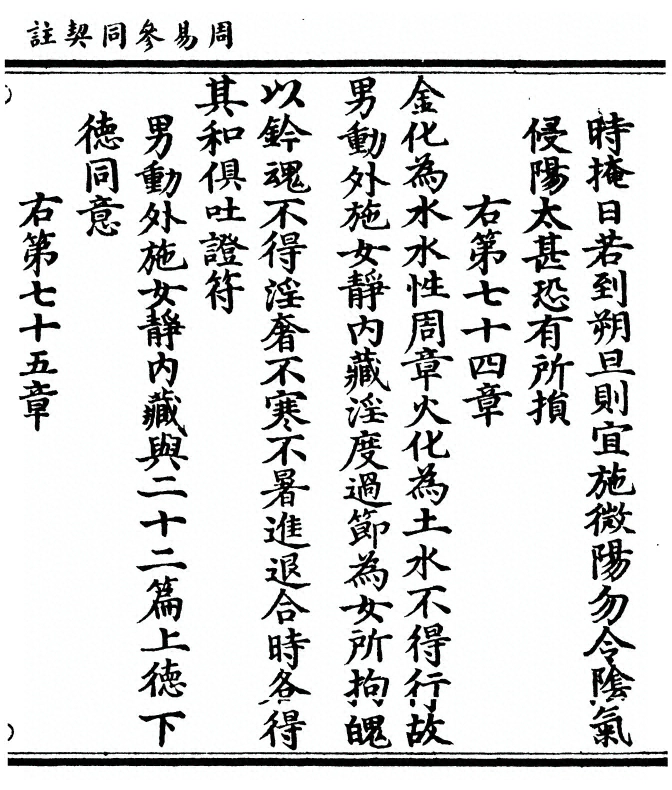 周易參同契註
時掩日若到朔旦則宜施微陽勿令陰氣
侵陽太甚恐有所損
右第七十四章
金化為水水性周章火化為土水不得行故
男動外施女靜內藏淫度過節為女所拘魄
以鈐魂不得淫奢不寒不暑進退合時各得
其和俱吐證符
男動外施女靜內藏與二十二篇上德下
德同意
右第七十五章